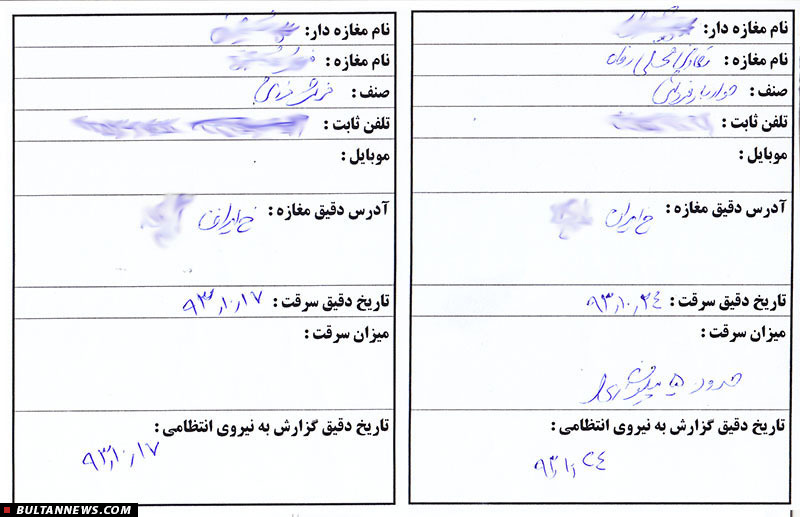 نام مغازه دار:
نام مغازه :
صنف : خواربار فروشی
تلفن ثابت :
موبایل :
آدرس دقیق مغازه : خ ایران
تاریخ دقیق سرقت : ۹۳,۱۰,۲۴
میزان سرقت :
حدود
تاریخ دقیق گزارش به نیروی انتظامی :
نام مغازه دار:
نام مغازه :
صنف :
تلفن ثابت :
موبایل :
آدرس دقیق مغازه : خ ایران
تاریخ دقیق سرقت : ۹۳,۱۰,۱۷
میزان سرقت :
تاریخ دقیق گزارش به نیروی انتظامی :
۹۳,۱۰,۱۷
BULTANNEWS.COM